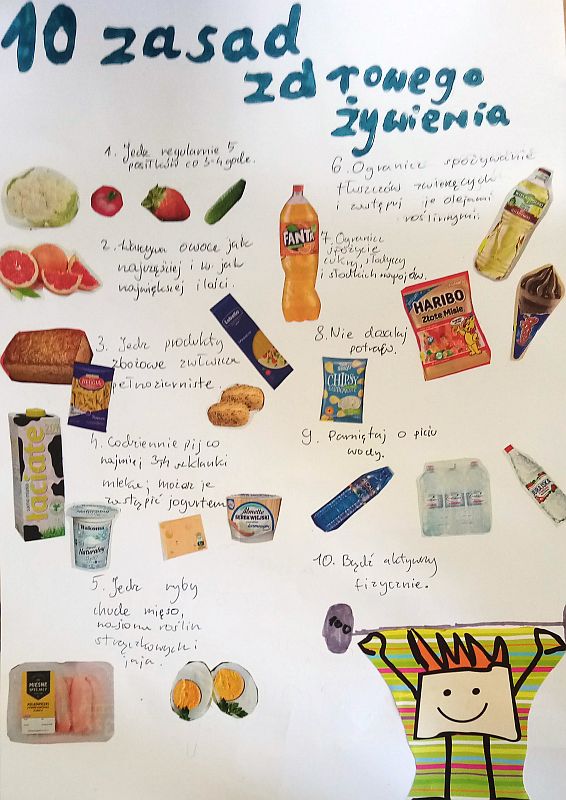 10 zasad
zdrowego
żywienia
1. Jedz regularnie 5
posiłków co 3-4 godz.
2. owoce jak
najczęściej i w jak
największej ilości.
3. Jedz produkty
zbożowe zwłaszcza
pełnoziarniste.
4. Codziennie pij co
najmniej 3/4 szklanki
mleka; możesz je
zastąpić jogurtem
5. Jedz ryby
chude mięso,
nasiona roślin
strączkowych i
jaja.
6. Ogranicz spożywanie
tłuszczów zwierzęcych
i zastępuj je olejami
roślinnymi.
7. Ogranicz
spożycie
cukru, słodyczy
i słodkich napojów.
8. Nie dosalaj
potraw.
9. Pamiętaj o piciu
wody.
10. Bądź aktywny
fizycznie.
FANTA
HARIBO
Złote Misie
Lubella
CHIPSY
łaciate
2,0%
Bakoma
Naturalny
Almette
SEREK WIEJSKI
MIĘSNE
100